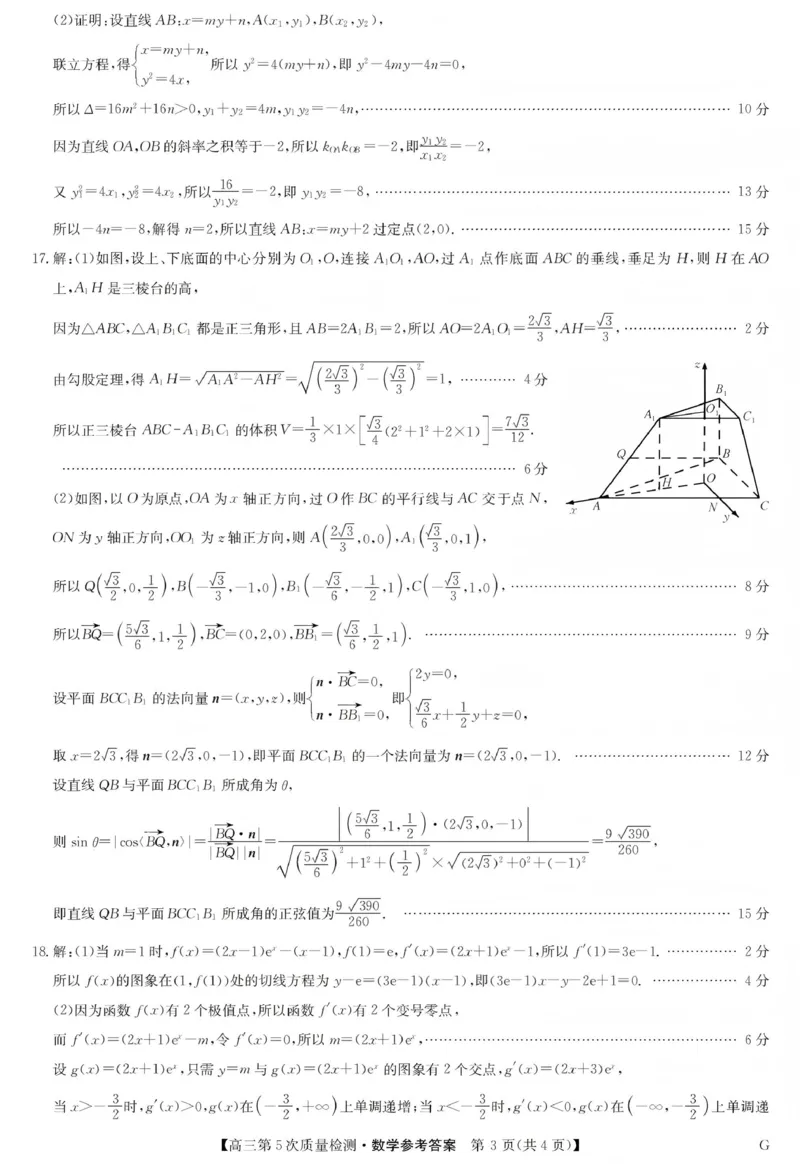 (2)证明:设直线 AB:x=my+n,A(x₁,y₁),B(x₂,y₂),
联立方程,得{x=my+n, y²=4x, 所以 y²=4(my+n),即 y²-4my-4n=0,
所以 Δ=16m²+16n>0,y₁+y₂=4m,y₁y₂=-4n,…… 10 分
因为直线 OA,OB 的斜率之积等于-2,所以 k_OA k_OB=-2,即 y₁y₂/x₁x₂=-2,
又 y₁²=4x₁,y₂²=4x₂,所以 16/y₁y₂=-2,即 y₁y₂=-8,…… 13 分
所以-4n=-8,解得 n=2,所以直线 AB:x=my+2 过定点(2,0). …… 15 分
17.解:(1)如图,设上、下底面的中心分别为 O₁,O,连接 A₁O₁,AO,过 A₁ 点作底面 ABC 的垂线,垂足为 H,则 H 在 AO
上,A₁H 是三棱台的高,
因为△ABC,△A₁B₁C₁ 都是正三角形,且 AB=2A₁B₁=2,所以 AO=2A₁O₁=2√3/3,AH=√3/3,…… 2 分
由勾股定理,得 A₁H=√(A₁A²-AH²)=√((2√3/3)²-(√3/3)²)=1,…… 4 分
所以正三棱台 ABC-A₁B₁C₁ 的体积 V=1/3×1×[√3/4(2²+1²+2×1)]=7√3/12.
…… 6 分
(2)如图,以 O 为原点,OA 为 x 轴正方向,过 O 作 BC 的平行线与 AC 交于点 N,
ON 为 y 轴正方向,OO₁ 为 z 轴正方向,则 A(2√3/3,0,0),A₁(√3/3,0,1),
z
B₁
A₁
O₁
C₁
Q
B
H
O
x
A
N
C
y
所以 Q(√3/2,0,1/2),B(-√3/3,-1,0),B₁(-√3/6,-1/2,1),C(-√3/3,1,0),…… 8 分
所以 BQ→=(5√3/6,1,1/2),BC→=(0,2,0),BB₁→=(√3/6,1/2,1). …… 9 分
设平面 BCC₁B₁ 的法向量 n=(x,y,z),则{n·BC→=0, n·BB₁→=0, 即{2y=0, √3/6x+1/2y+z=0,
取 x=2√3,得 n=(2√3,0,-1),即平面 BCC₁B₁ 的一个法向量为 n=(2√3,0,-1). …… 12 分
设直线 QB 与平面 BCC₁B₁ 所成角为 θ,
则 sin θ=|cos⟨BQ→,n⟩|=|BQ→·n|/|BQ→||n|=|(5√3/6,1,1/2)·(2√3,0,-1)|/(√((5√3/6)²+1²+(1/2)²)×√((2√3)²+0²+(-1)²))=9√390/260,
即直线 QB 与平面 BCC₁B₁ 所成角的正弦值为 9√390/260. …… 15 分
18.解:(1)当 m=1 时,f(x)=(2x-1)eˣ-(x-1),f(1)=e,f′(x)=(2x+1)eˣ-1,所以 f′(1)=3e-1. …… 2 分
所以 f(x)的图象在(1,f(1))处的切线方程为 y-e=(3e-1)(x-1),即(3e-1)x-y-2e+1=0. …… 4 分
(2)因为函数 f(x)有 2 个极值点,所以函数 f′(x)有 2 个变号零点,
而 f′(x)=(2x+1)eˣ-m,令 f′(x)=0,所以 m=(2x+1)eˣ,…… 6 分
设 g(x)=(2x+1)eˣ,只需 y=m 与 g(x)=(2x+1)eˣ 的图象有 2 个交点,g′(x)=(2x+3)eˣ,
当 x>-3/2时,g′(x)>0,g(x)在(-3/2,+∞)上单调递增;当 x<-3/2时,g′(x)<0,g(x)在(-∞,-3/2)上单调递
【高三第 5 次质量检测·数学参考答案 第 3 页(共 4 页)】 G